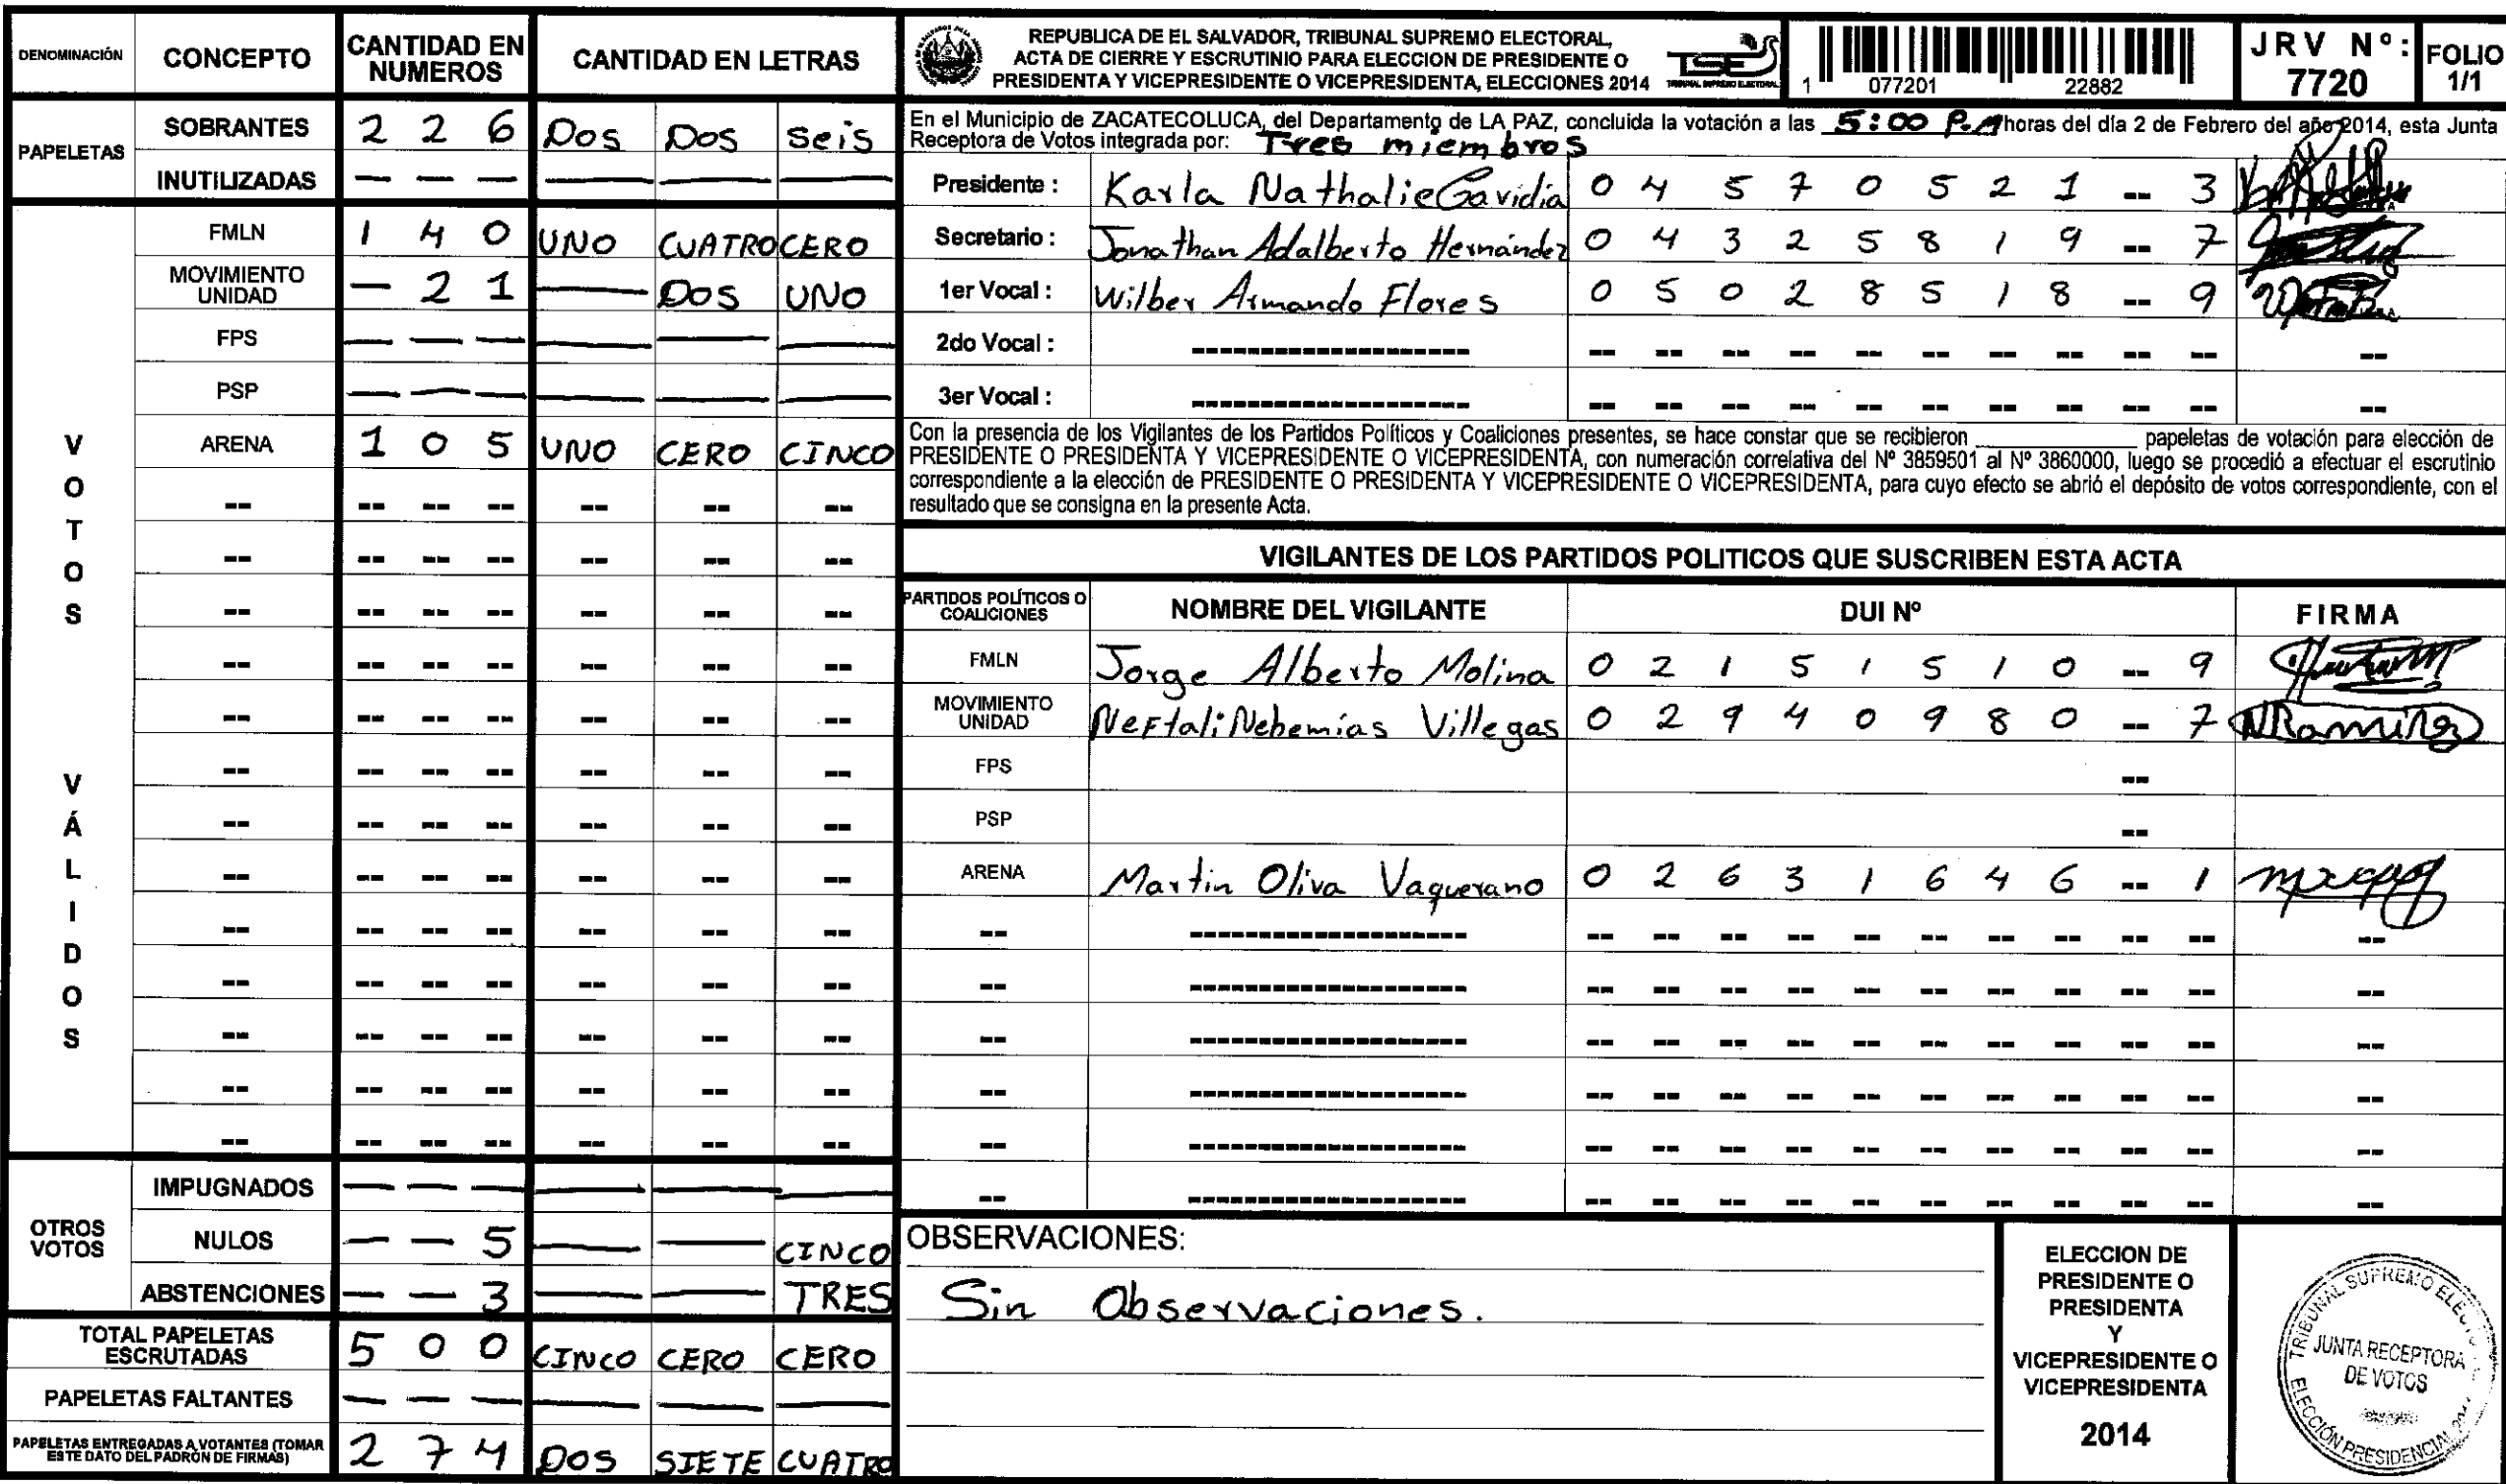 DENOMINACIÓN CONCEPTO CANTIDAD EN NUMEROS CANTIDAD EN LETRAS
PAPELETAS
SOBRANTES 2 2 6 DOS DOS seis
INUTILIZADAS — — — — — —
VOTOS VÁLIDOS
FMLN 1 4 0 UNO CUATRO CERO
MOVIMIENTO UNIDAD — 2 1 — DOS UNO
FPS — — — — — —
PSP — — — — — —
ARENA 1 0 5 UNO CERO CINCO
-- -- -- -- -- -- --
-- -- -- -- -- -- --
-- -- -- -- -- -- --
-- -- -- -- -- -- --
-- -- -- -- -- -- --
-- -- -- -- -- -- --
-- -- -- -- -- -- --
-- -- -- -- -- -- --
-- -- -- -- -- -- --
-- -- -- -- -- -- --
-- -- -- -- -- -- --
-- -- -- -- -- -- --
-- -- -- -- -- -- --
OTROS VOTOS
IMPUGNADOS — — — — — —
NULOS — — 5 — — CINCO
ABSTENCIONES — — 3 — — TRES
TOTAL PAPELETAS ESCRUTADAS 5 0 0 CINCO CERO CERO
PAPELETAS FALTANTES — — — — — —
PAPELETAS ENTREGADAS A VOTANTES (TOMAR ESTE DATO DEL PADRÓN DE FIRMAS) 2 7 4 DOS SIETE CUATRO
REPUBLICA DE EL SALVADOR, TRIBUNAL SUPREMO ELECTORAL,
ACTA DE CIERRE Y ESCRUTINIO PARA ELECCION DE PRESIDENTE O
PRESIDENTA Y VICEPRESIDENTE O VICEPRESIDENTA, ELECCIONES 2014
TSE
TRIBUNAL SUPREMO ELECTORAL
1 077201 22882
JRV Nº: 7720
FOLIO 1/1
En el Municipio de ZACATECOLUCA, del Departamento de LA PAZ, concluida la votación a las 5:00 P.M horas del día 2 de Febrero del año 2014, esta Junta
Receptora de Votos integrada por: Tres miembros
Presidente : Karla Nathalie Gavidia 0 4 5 7 0 5 2 1 -- 3
Secretario : Jonathan Adalberto Hernández 0 4 3 2 5 8 1 9 -- 7
1er Vocal : Wilber Armando Flores 0 5 0 2 8 5 1 8 -- 9
2do Vocal : -------------------- -- -- -- -- -- -- -- -- -- -- --
3er Vocal : -------------------- -- -- -- -- -- -- -- -- -- -- --
Con la presencia de los Vigilantes de los Partidos Políticos y Coaliciones presentes, se hace constar que se recibieron ____________ papeletas de votación para elección de
PRESIDENTE O PRESIDENTA Y VICEPRESIDENTE O VICEPRESIDENTA, con numeración correlativa del Nº 3859501 al Nº 3860000, luego se procedió a efectuar el escrutinio
correspondiente a la elección de PRESIDENTE O PRESIDENTA Y VICEPRESIDENTE O VICEPRESIDENTA, para cuyo efecto se abrió el depósito de votos correspondiente, con el
resultado que se consigna en la presente Acta.
VIGILANTES DE LOS PARTIDOS POLITICOS QUE SUSCRIBEN ESTA ACTA
PARTIDOS POLÍTICOS O COALICIONES NOMBRE DEL VIGILANTE DUI Nº FIRMA
FMLN Jorge Alberto Molina 0 2 1 5 1 5 1 0 -- 9
MOVIMIENTO UNIDAD Neftali Nehemías Villegas 0 2 9 4 0 9 8 0 -- 7 NRamirez
FPS --
PSP --
ARENA Martin Oliva Vaquerano 0 2 6 3 1 6 4 6 -- 1
-- -------------------- -- -- -- -- -- -- -- -- -- -- --
-- -------------------- -- -- -- -- -- -- -- -- -- -- --
-- -------------------- -- -- -- -- -- -- -- -- -- -- --
-- -------------------- -- -- -- -- -- -- -- -- -- -- --
-- -------------------- -- -- -- -- -- -- -- -- -- -- --
-- -------------------- -- -- -- -- -- -- -- -- -- -- --
OBSERVACIONES:
Sin Observaciones.
ELECCION DE
PRESIDENTE O
PRESIDENTA
Y
VICEPRESIDENTE O
VICEPRESIDENTA
2014
TRIBUNAL SUPREMO
JUNTA RECEPTORA
DE VOTOS
ELECCIÓN PRESIDENCIAL